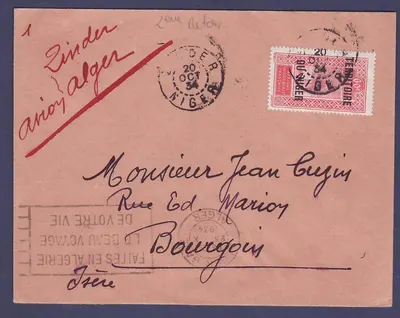 2ème Retour
Zinder
avion Alger
ZINDER
20
OCT
34
NIGER
20
OCT
34
NIGER
TERRITOIRE
DU NIGER
Monsieur Jean Cuzin
Rue Ed. Marion
Bourgoin
Isère
ALGER
FAITES EN ALGERIE
LE BEAU VOYAGE
DE VOTRE VIE